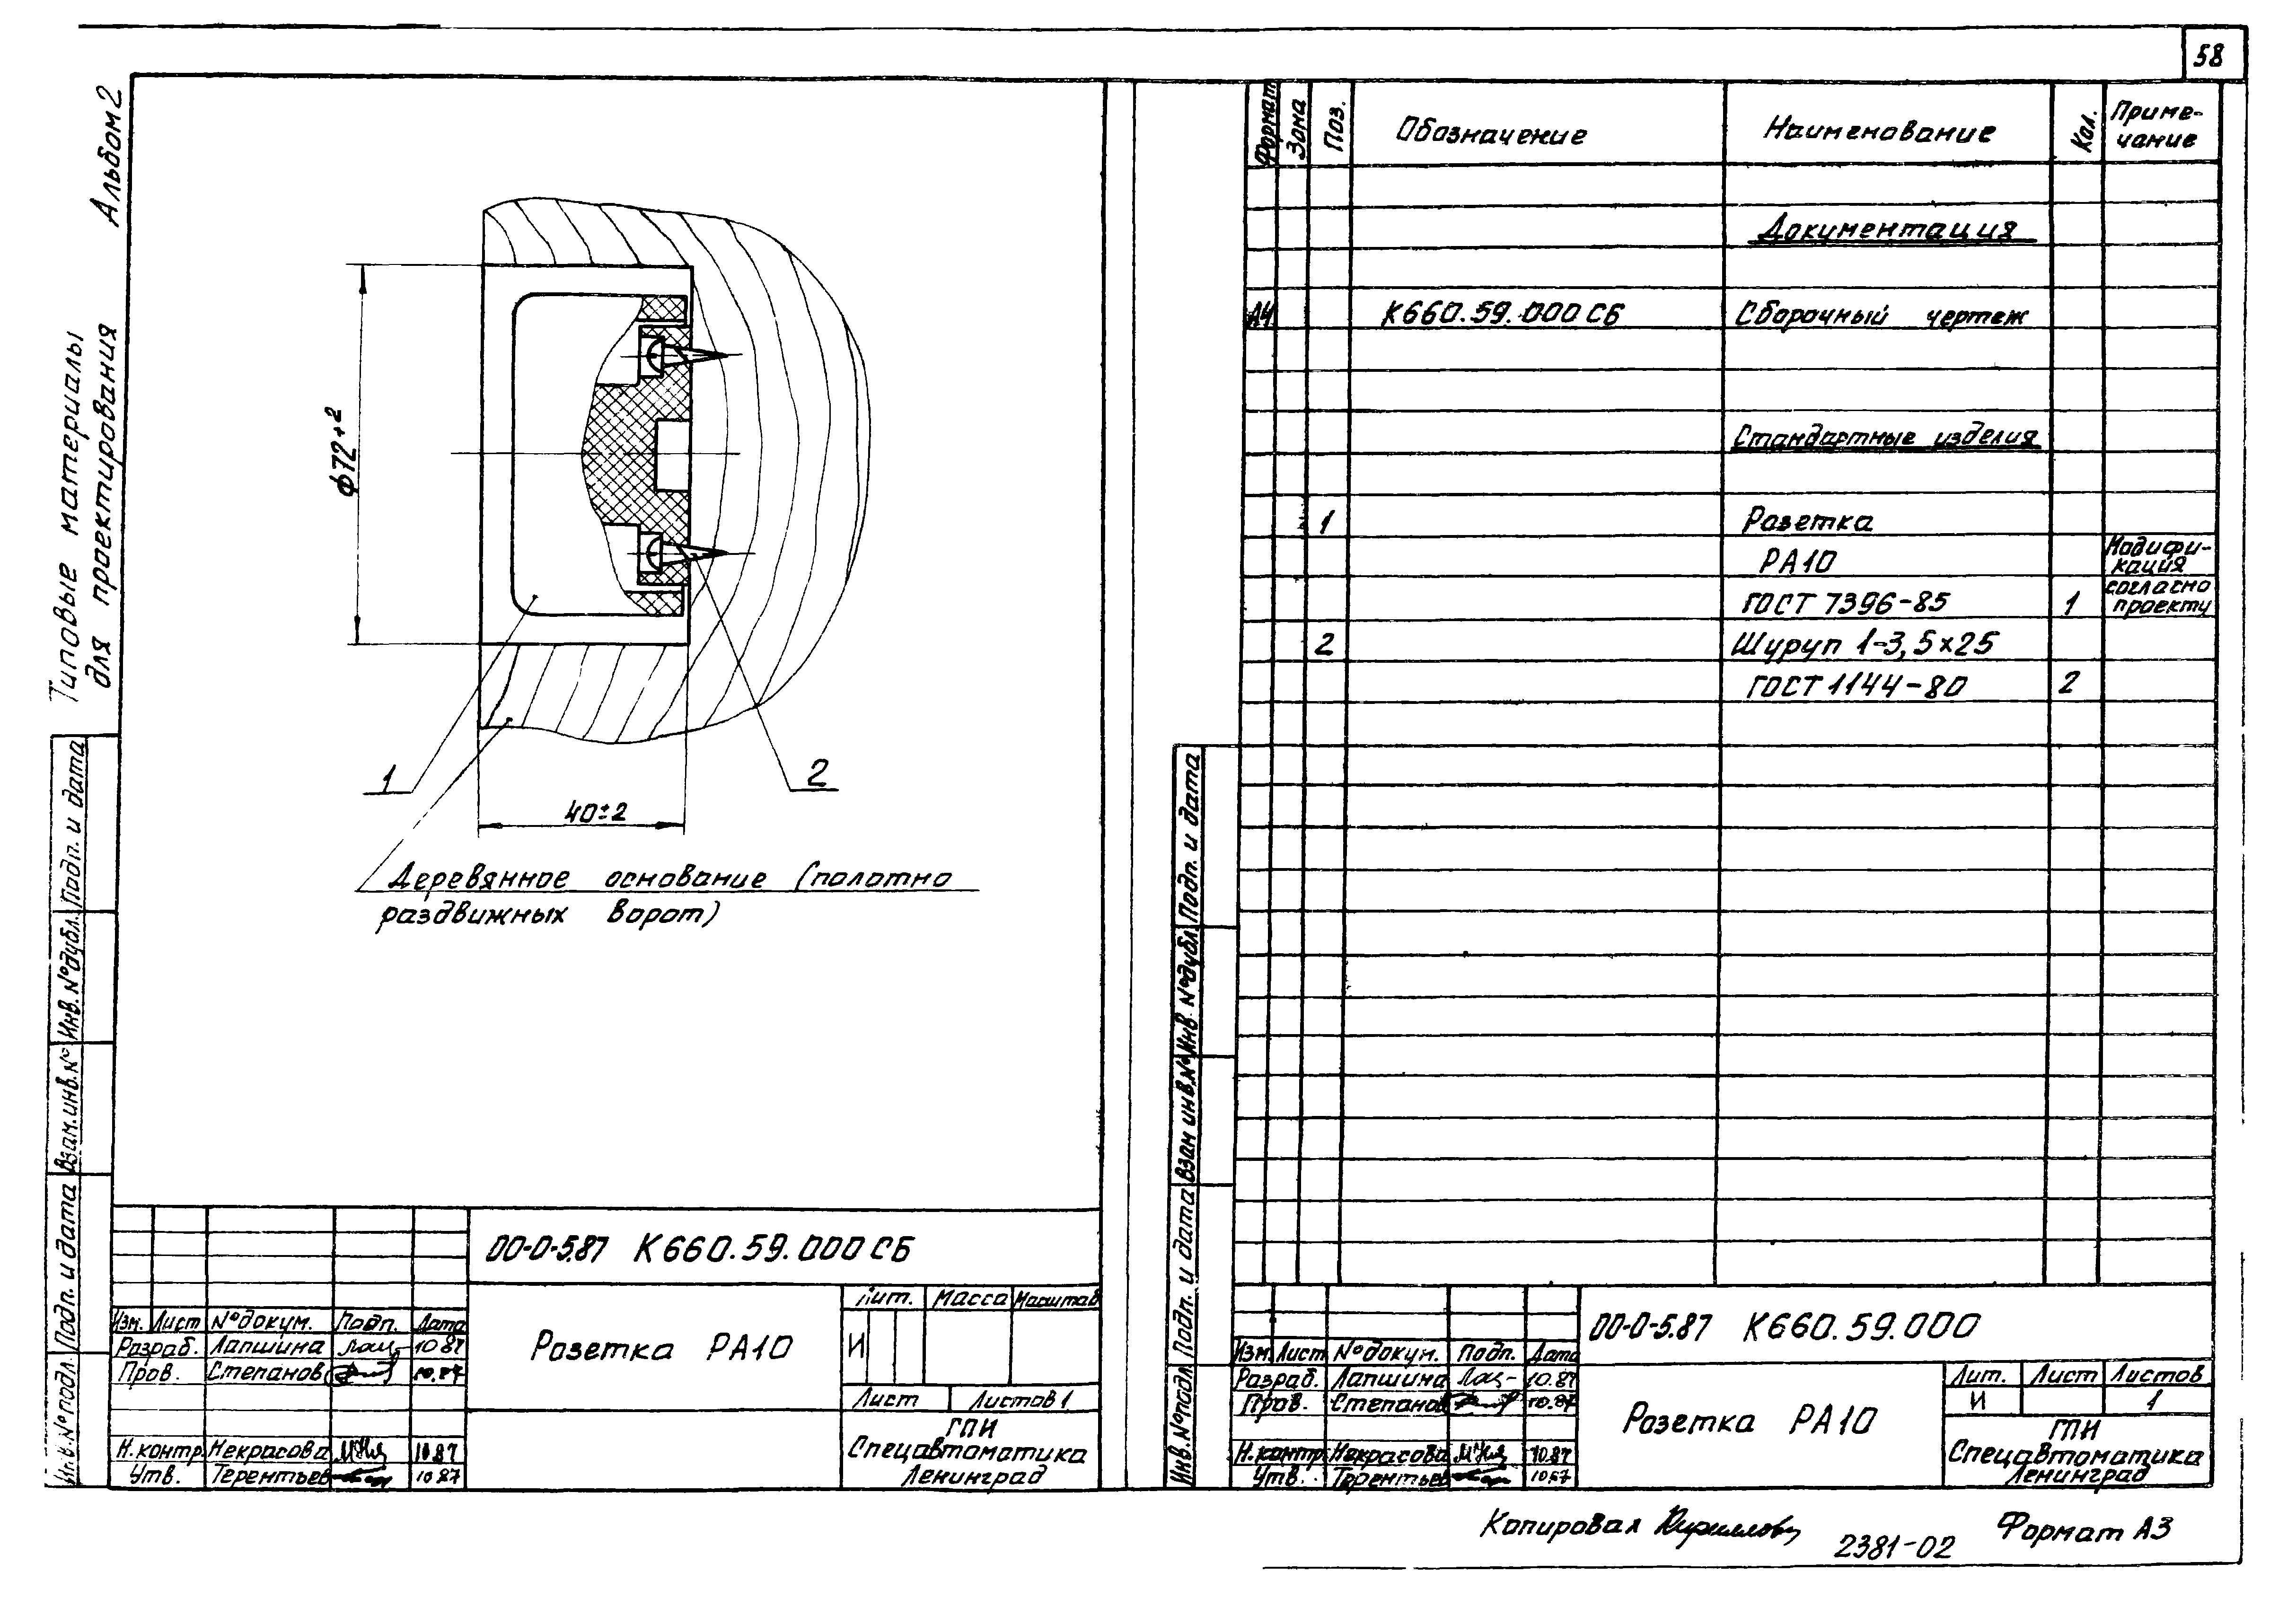 58
Альбом 2
Типовые материалы
для проектирования
ф72+2
1
2
40±2
Деревянное основание (полотно
раздвижных ворот)
Подп. и дата
Инв. №дубл.
Взам. инв. №
Подп. и дата
Инв. №подл.
00-0-5.87 К660.59.000 СБ
Изм. Лист №докум. Подп. Дата
Разраб. Лапшина 10.87
Пров. Степанов 10.87
Н.контр. Некрасова 10.87
Утв. Терентьев 10.87
Розетка РА10
Лит. Масса Масштаб
И
Лист Листов 1
ГПИ
Спецавтоматика
Ленинград
Формат Зона Поз. Обозначение Наименование Кол. Приме-
чание
Документация
А4 К660.59.000 СБ Сборочный чертеж
Стандартные изделия
1 Розетка
РА10 Модифи-
кация
ГОСТ 7396-85 1 согласно
проекту
2 Шуруп 1-3,5×25
ГОСТ 1144-80 2
Подп. и дата
Инв. №дубл.
Взам инв.№
Подп. и дата
Инв. №подл.
00-0-5.87 К660.59.000
Изм. Лист №докум. Подп. Дата
Разраб. Лапшина 10.87
Пров. Степанов 10.87
Н.контр. Некрасова 10.87
Утв. Терентьев 10.87
Розетка РА10
Лит. Лист Листов
И 1
ГПИ
Спецавтоматика
Ленинград
Копировал
2381-02
Формат А3